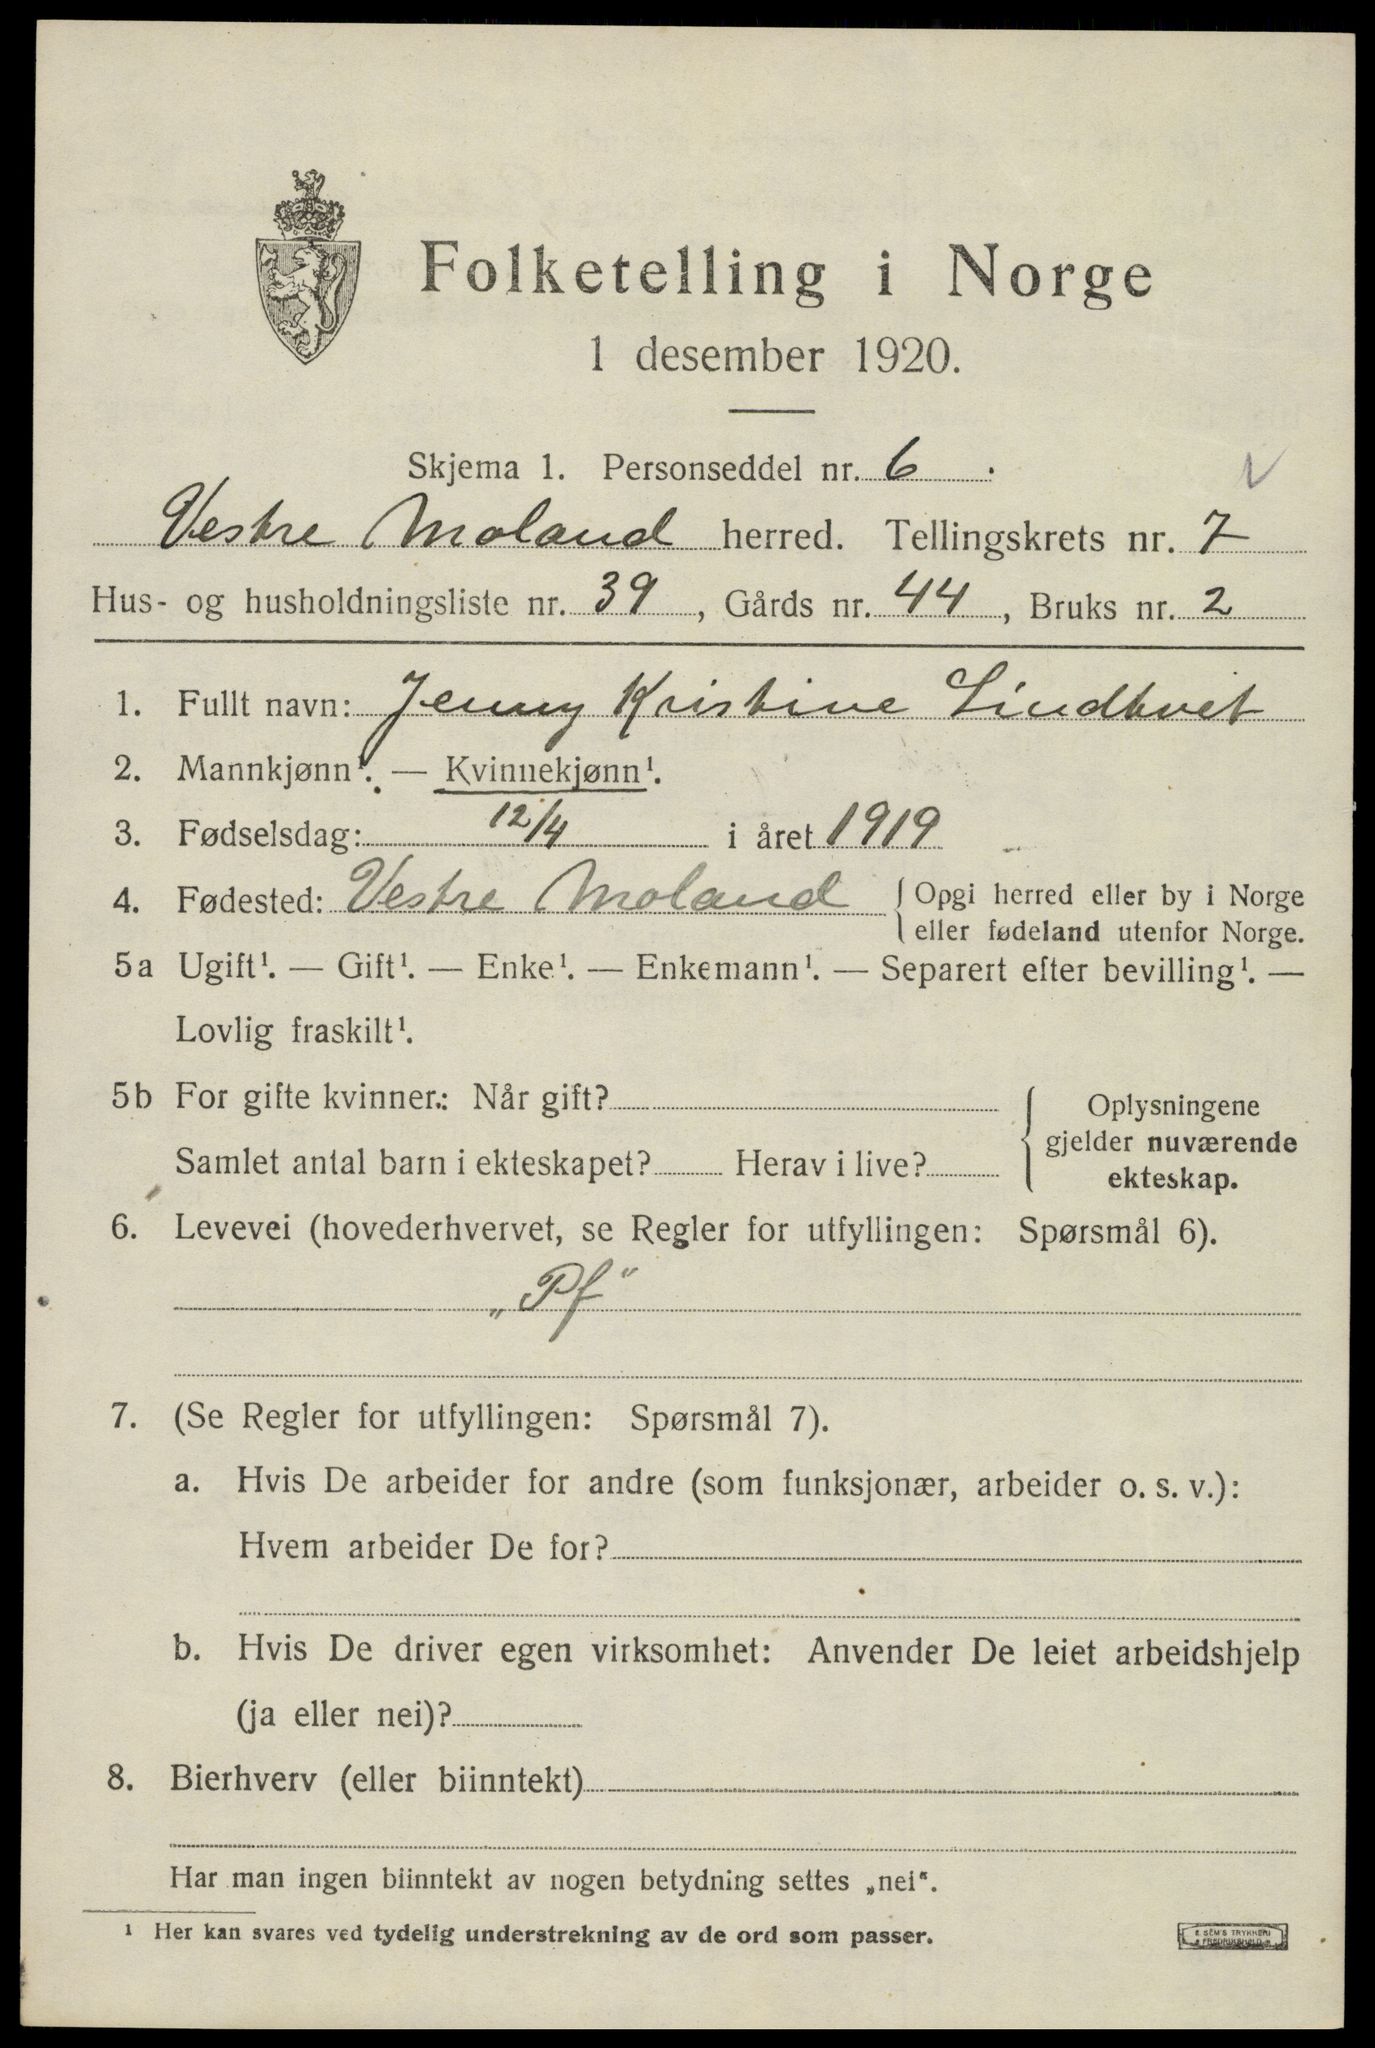 Folketelling i Norge
1 desember 1920.
Skjema 1. Personseddel nr. 6 .
Vestre Moland herred. Tellingskrets nr. 7
Hus- og husholdningsliste nr. 39, Gårds nr. 44, Bruks nr. 2
1. Fullt navn: Jenny Kristine Lindtveit
2. Mannkjønn¹. — Kvinnekjønn¹.
3. Fødselsdag: 12/4 i året 1919
4. Fødested: Vestre Moland { Opgi herred eller by i Norge
eller fødeland utenfor Norge.
5a Ugift¹. — Gift¹. — Enke¹. — Enkemann¹. — Separert efter bevilling¹. —
Lovlig fraskilt¹.
5b For gifte kvinner: Når gift?
Samlet antal barn i ekteskapet? Herav i live?
Oplysningene
gjelder nuværende
ekteskap.
6. Levevei (hovederhvervet, se Regler for utfyllingen: Spørsmål 6).
„Pf“
7. (Se Regler for utfyllingen: Spørsmål 7).
a. Hvis De arbeider for andre (som funksjonær, arbeider o. s. v.):
Hvem arbeider De for?
b. Hvis De driver egen virksomhet: Anvender De leiet arbeidshjelp
(ja eller nei)?
8. Bierhverv (eller biinntekt)
Har man ingen biinntekt av nogen betydning settes „nei“.
¹ Her kan svares ved tydelig understrekning av de ord som passer.
E. SEM'S TRYKKERI
FREDRIKSHALD